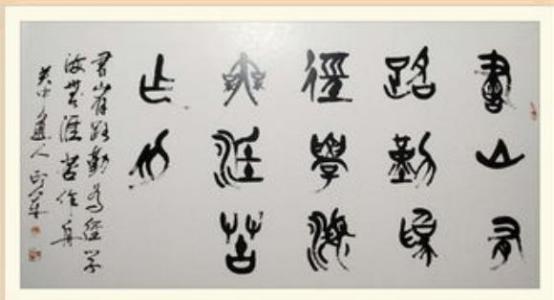 書山有
路勤為
徑學海
無涯苦
乍舟
書山有路勤為徑学
海無涯苦作舟